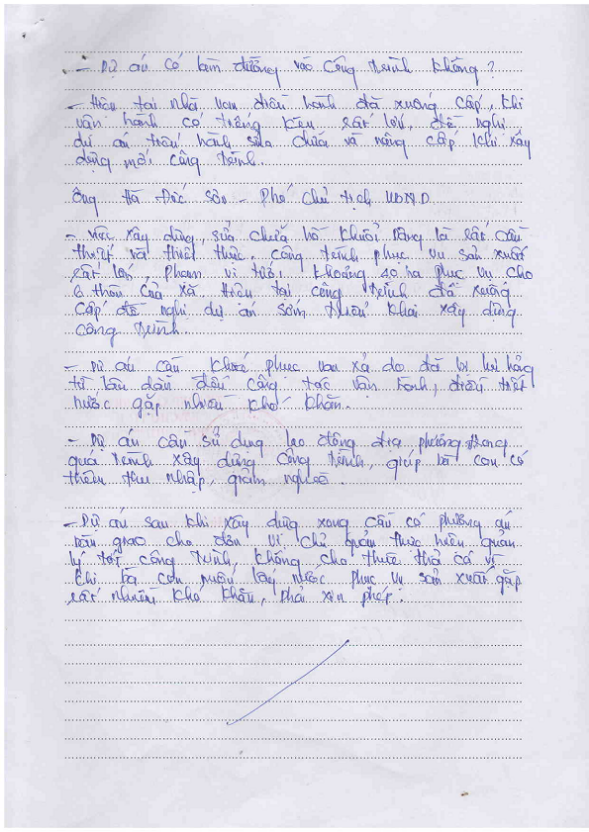 - Dự án có làm đường vào công trình không?
- Hiện tại nhà van điều hành đã xuống cấp, khi
vận hành có tiếng kêu rất lớn, đề nghị
dự án tiến hành sửa chữa và nâng cấp khi xây
dựng mới công trình.
Ông Hà Đức Sơn - Phó chủ tịch UBND
- Việc xây dựng, sửa chữa hồ Khuôi là rất cần
thiết và thiết thực. công trình phục vụ sản xuất
rất lớn, phạm vi tưới khoảng 40 ha phục vụ cho
6 thôn của xã. Hiện tại công trình đã xuống
cấp đề nghị dự án sớm triển khai xây dựng
công trình.
- Dự án cần khắc phục van xả do đã bị hư hỏng
từ lâu dẫn đến công tác vận hành, điều tiết
nước gặp nhiều khó khăn.
- Dự án cần sử dụng lao động địa phương trong
quá trình xây dựng công trình, giúp bà con có
thêm thu nhập, giảm nghèo.
- Dự án sau khi xây dựng xong cần có phương án
bàn giao cho đơn vị chủ quản thực hiện quản
lý tốt công trình, không cho thuê thả cá vì
khi bà con muốn lấy nước phục vụ sản xuất gặp
rất nhiều khó khăn, phải xin phép.